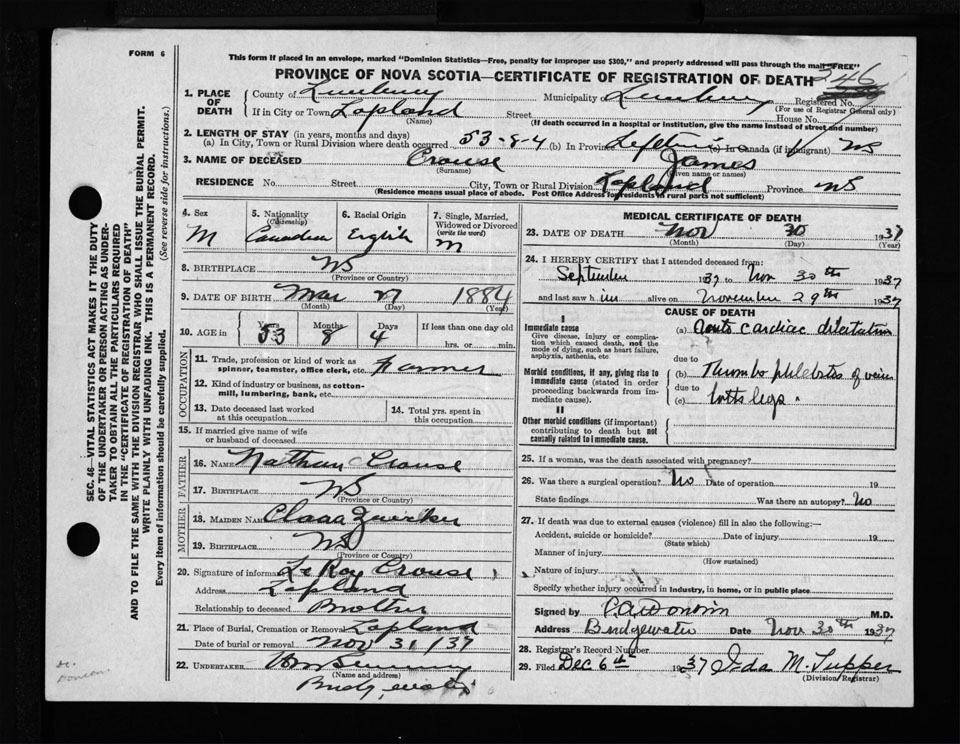 FORM 6
This form if placed in an envelope, marked "Dominion Statistics—Free, penalty for improper use $300," and properly addressed will pass through the mail "FREE"
PROVINCE OF NOVA SCOTIA—CERTIFICATE OF REGISTRATION OF DEATH
246
1. PLACE OF DEATH
County of Lunenburg Municipality Lunenburg Registered No.
(For use of Registrar General only)
If in City or Town Lapland Street House No.
(Name) (If death occurred in a hospital or institution, give the name instead of street and number)
2. LENGTH OF STAY (in years, months and days)
(a) In City, Town or Rural Division where death occurred 53-8-4 (b) In Province Lifetime (c) In Canada (if immigrant) NS
3. NAME OF DECEASED Crouse James
(Surname) (Given name or names)
RESIDENCE No. Street City, Town or Rural Division Lapland Province NS
(Residence means usual place of abode. Post Office Address for residents in rural parts not sufficient)
4. Sex M
5. Nationality (Citizenship) Canadian
6. Racial Origin English
7. Single, Married, Widowed or Divorced (write the word) M
8. BIRTHPLACE NS
(Province or Country)
9. DATE OF BIRTH Mar 27 1884
(Month) (Day) (Year)
10. AGE in Years Months Days If less than one day old
53 8 4 hrs. or min.
OCCUPATION
11. Trade, profession or kind of work as spinner, teamster, office clerk, etc. Farmer
12. Kind of industry or business, as cotton-mill, lumbering, bank, etc.
13. Date deceased last worked at this occupation
14. Total yrs. spent in this occupation
15. If married give name of wife or husband of deceased
FATHER
16. NAME Nathan Crouse
17. BIRTHPLACE NS
(Province or Country)
MOTHER
18. MAIDEN NAME Claaa Zwicker
19. BIRTHPLACE NS
(Province or Country)
20. Signature of informant LeRoy Crouse
Address Lapland
Relationship to deceased Brother
21. Place of Burial, Cremation or Removal Lapland
Date of burial or removal Nov 31/37
22. UNDERTAKER
(Name and address)
Bridgewater
MEDICAL CERTIFICATE OF DEATH
23. DATE OF DEATH Nov 30 1937
(Month) (Day) (Year)
24. I HEREBY CERTIFY that I attended deceased from:
September 1937 to Nov 30th 1937
and last saw h im alive on November 29th 1937
CAUSE OF DEATH
I
Immediate cause
Give disease, injury or complication which caused death, not the mode of dying, such as heart failure, asphyxia, asthenia, etc
(a) Acute cardiac dilatation
due to
Morbid conditions, if any, giving rise to immediate cause (stated in order proceeding backwards from immediate cause).
(b) Thrombo phlebitis of veins
due to
(c) both legs.
II
Other morbid conditions (if important) contributing to death but not causally related to immediate cause.
25. If a woman, was the death associated with pregnancy?
26. Was there a surgical operation? No Date of operation 19
State findings Was there an autopsy? No
27. If death was due to external causes (violence) fill in also the following:—
Accident, suicide or homicide? Date of injury 19
(State which)
Manner of injury
(How sustained)
Nature of injury
Specify whether injury occurred in industry, in home, or in public place
Signed by M.D.
Address Bridgewater Date Nov 30th 1937
28. Registrar's Record Number
29. Filed Dec 6th 1937 Ida M. Tupper
(Division Registrar)
SEC. 46—VITAL STATISTICS ACT MAKES IT THE DUTY
OF THE UNDERTAKER OR PERSON ACTING AS UNDER-
TAKER TO OBTAIN ALL THE PARTICULARS REQUIRED
IN THE "CERTIFICATE OF REGISTRATION OF DEATH"
AND TO FILE THE SAME WITH THE DIVISION REGISTRAR WHO SHALL ISSUE THE BURIAL PERMIT.
WRITE PLAINLY WITH UNFADING INK. THIS IS A PERMANENT RECORD.
Every item of information should be carefully supplied. (See reverse side for instructions.)